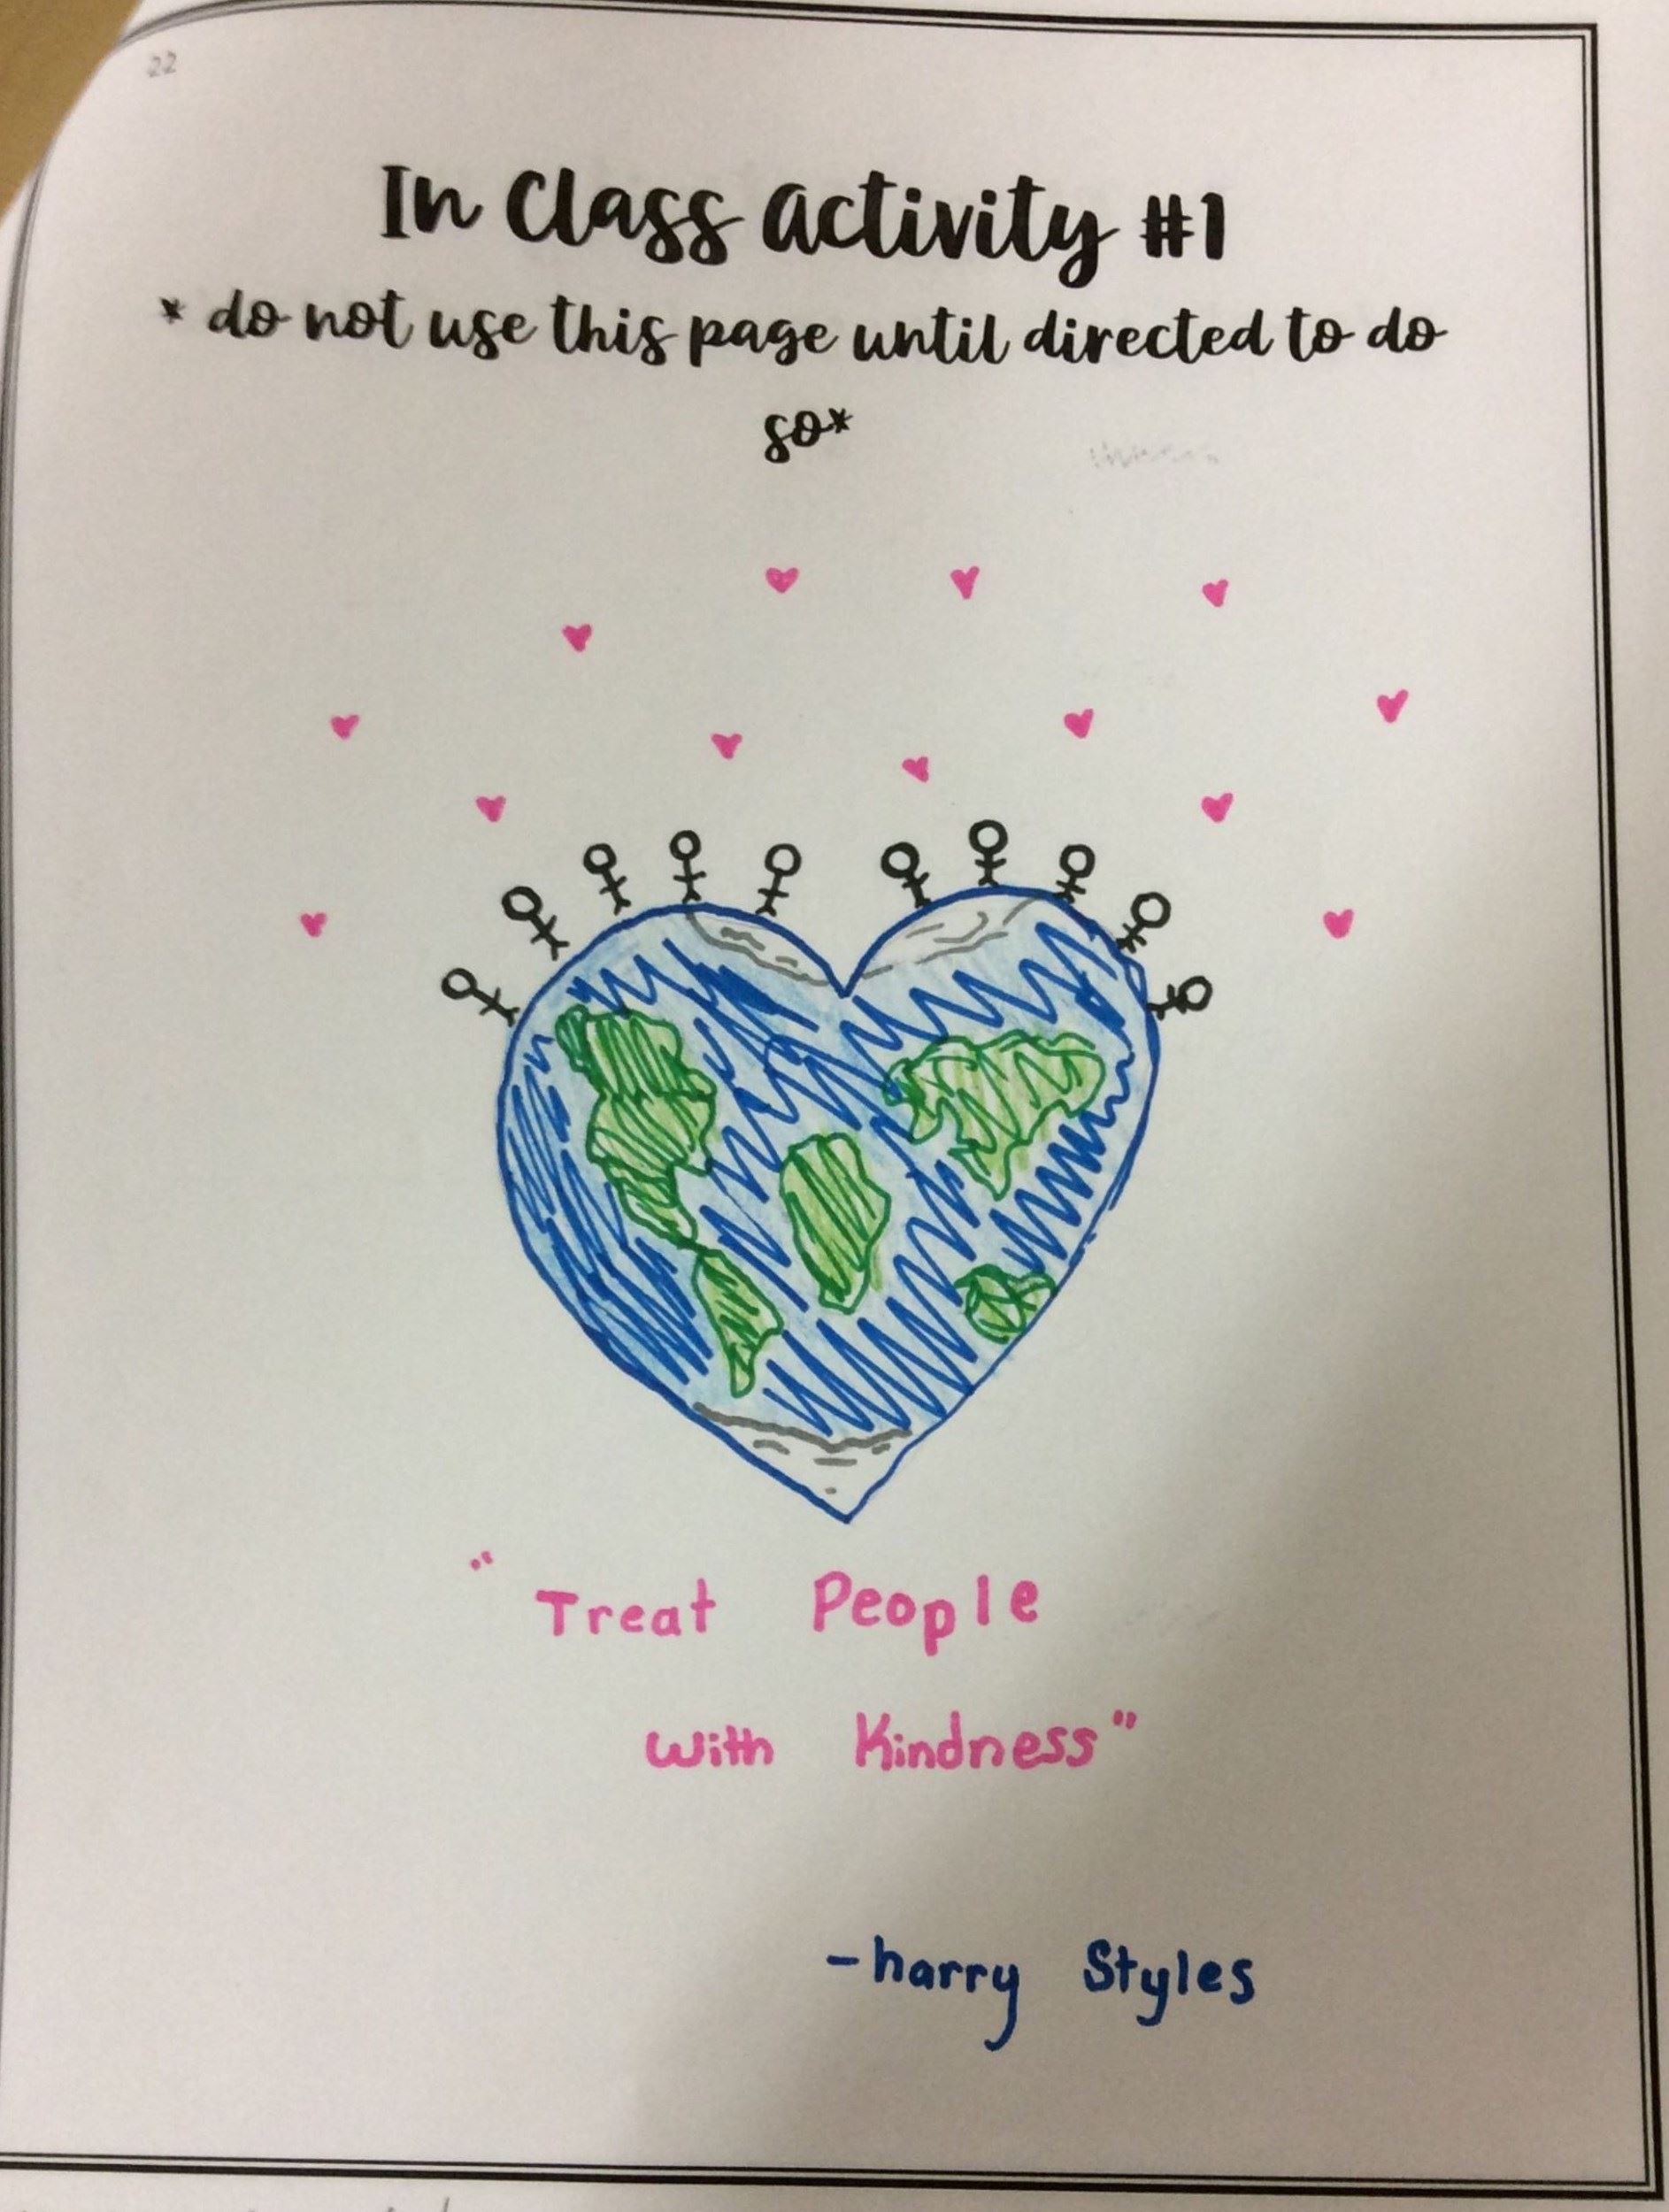 22
In Class Activity #1
* do not use this page until directed to do
so*
"Treat People
with Kindness"
-harry Styles